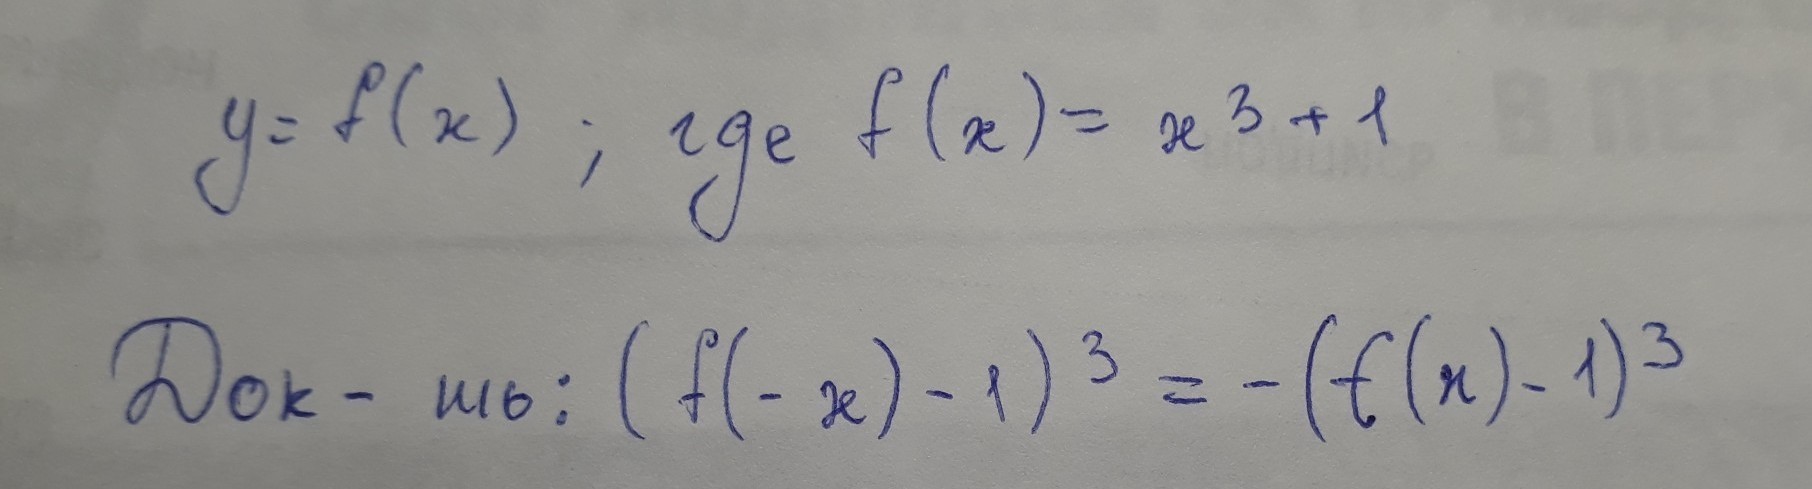 y = f(x) ; где f(x) = x³ + 1
Док - ть: (f(-x) - 1)³ = - (f(x) - 1)³